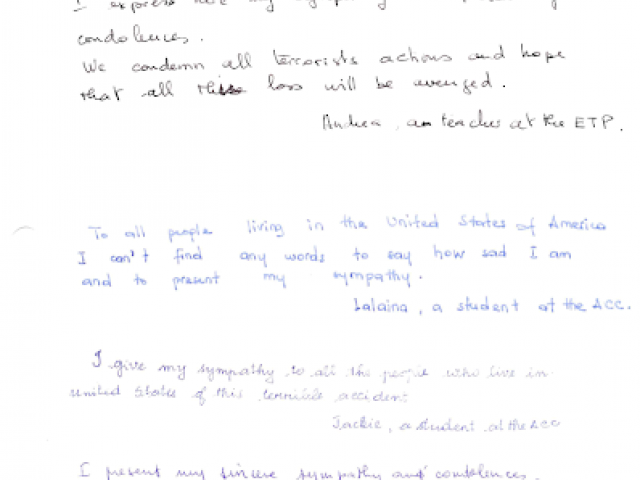 I express
condolences.
We condemn all terrorists actions and hope
that all this loss will be avenged.
Andrea, an teacher at the ETP.
To all people living in the United States of America
I can't find any words to say how sad I am
and to present my sympathy.
Lalaina, a student at the ACC.
I give my sympathy to all the people who live in
united States of this terrible accident.
Jackie, a student at the ACC
I present my sincere sympathy and condolences.